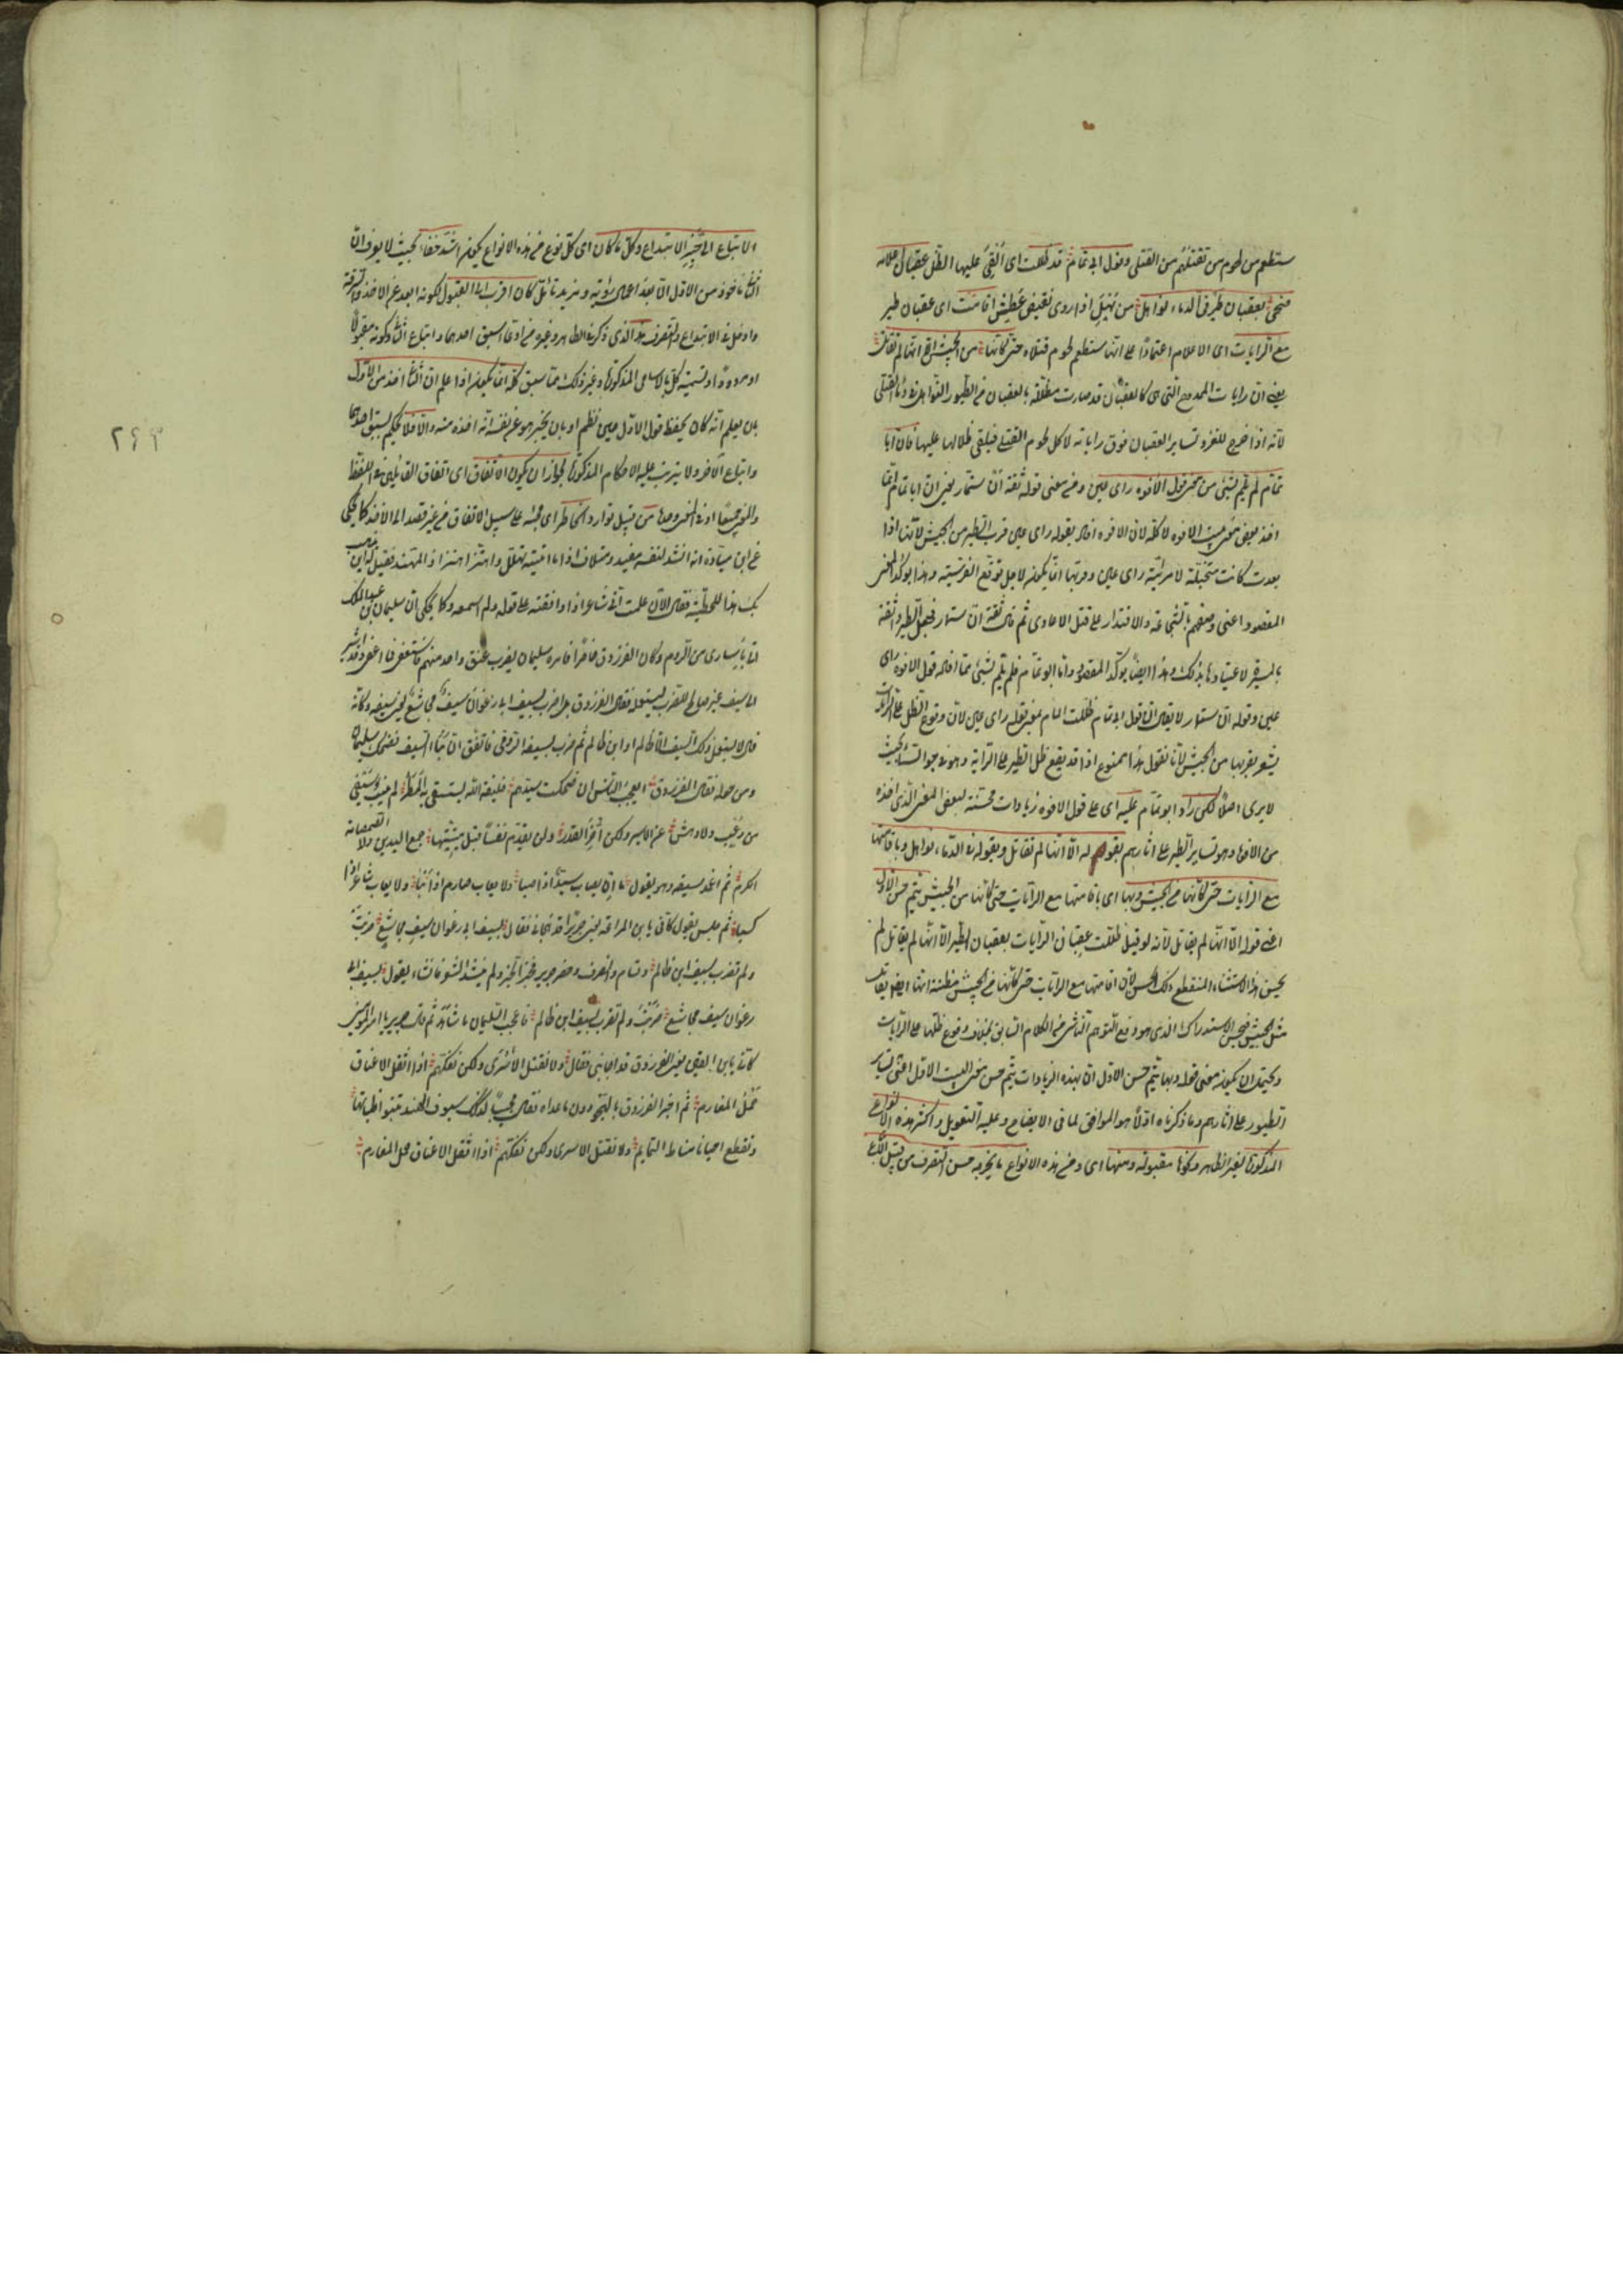 ستطعم من لحوم من تقتلهم من القتلى وقول ابى تمام قد ظللت اى القى عليها الظل عقبان اعلامه
ضحى بعقبان طير فى الدماء نواهل من نهل اذا روى نقيض عطش اقامت اى عقبان طير
مع الرايات اى الاعلام اعتمادا على انها ستطعم لحوم قتلاه حتى كانها من الجيش الا انها لم تقاتل
يعنى ان رايات الممدوح التى هى كالعقبان قد صارت مظللة بالعقبان من الطيور النواهل فى دماء القتلى
لانه اذا خرج للغزو تساير العقبان فوق راياته لاكل لحوم القتلى فيلقى ظلالها عليها فان ابا
تمام لم يلم بشئ من معنى قول الافوه راى عين ومن معنى قوله ثقة ان ستمار يعنى ان ابا تمام انما
اخذ بعض معنى بيت الافوه لا كله لان الافوه افاد بقوله راى عين قرب الطير من الجيش لانها اذا
بعدت كانت متخيلة لا مرئية راى عين وقربها انما يكون لاجل توقع الفريسة وهذا يؤكد المعنى
المقصود اعنى وصفهم بالشجاعة والاقتدار على قتل الاعادى ثم قال ثقة ان ستمار فجعل الطير واثقة
بالميرة لاعتيادها بذلك وهذا ايضا يؤكد المقصود واما ابو تمام فلم يلم بشئ مما افاده قول الافوه راى
عين وقوله ان ستمار لا يقال ان قول ابى تمام ظللت المام بمعنى قوله راى عين لان وقوع الظل على الرايات
يشعر بقربها من الجيش لانا نقول هذا ممنوع اذ قد يقع ظل الطير على الراية وهو فى جو السماء بحيث
لا يرى اصلا لكن زاد ابو تمام عليه اى على قول الافوه زيادات محسنة لبعض المعنى الذى اخذه
من الافوه وهو تساير الطير على اثارهم بقوله الا انها لم تقاتل وبقوله فى الدماء نواهل وباقامتها
مع الرايات حتى كانها من الجيش وبها اى باقامتها مع الرايات حتى كانها من الجيش يتم حسن الاول
اعنى قوله الا انها لم يقاتل لانه لو قيل ظللت عقبان الرايات بعقبان الطير الا انها لم يقاتل لم
يحسن هذا الاستثناء المنقطع ذلك الحسن لان اقامتها مع الرايات حتى كانها من الجيش مظنة انها ايضا يقاتل
مثل الجيش فيحسن الاستدراك الذى هو دفع التوهم الناشى من الكلام السابق بخلاف وقوع ظلها على الرايات
ويحتمل ان يكون معنى قوله وبها يتم حسن الاول ان بهذه الزيادات يتم حسن معنى البيت الاول اعنى تساير
الطيور على اثارهم وما ذكرناه اولا هو الموافق لما فى الايضاح وعليه التعويل واكثر هذه الانواع
المذكورة لغير الظاهر ونحوها مقبولة ومنها اى ومن هذه الانواع ما يخرجه حسن التصرف من قبيل الاتباع
الاتباع الى حيز الابتداع وكل ما كان اى كل نوع من هذه الانواع يكون اشد خفاء بحيث لا يعرف ان
الثانى مأخوذ من الاول الا بعد اعمال روية ومزيد تأمل كان اقرب الى القبول لكونه ابعد عن الاخذ والسرقة
وادخل فى الابتداع والتصرف هذا الذى ذكر فى الظاهر وغيره من ادعاء سبق احدهما واتباع الثانى وكونه مقبولا
او مردودا وتسمية كل بالاسامى المذكورة وغير ذلك مما سبق كله انما يكون اذا علم ان الثانى اخذ من الاول
بان يعلم انه كان يحفظ قول الاول حين نظم او بان يخبر هو عن نفسه انه اخذه منه والا فلا يحكم بسبق احدهما
واتباع الآخر ولا يترتب عليه الاحكام المذكورة لجواز ان يكون الاتفاق اى اتفاق القائلين فى اللفظ
والمعنى جميعا او فى المعنى وحده من قبيل توارد الخاطر اى مجيئه على سبيل الاتفاق من غير قصد الى الاخذ كما يحكى
عن ابن ميادة انه انشد لنفسه مفيد ومتلاف اذا ما اتيته تهلل واهتز اهتزاز المهند فقيل له اين يذهب
بك هذا للحطيئة فقال الآن علمت انى شاعر اذا وافقته على قوله ولم اسمعه وكما يحكى ان سليمان بن عبد الملك
اتى باسارى من الروم وكان الفرزدق حاضرا فامره سليمان بضرب عنق واحد منهم فاستعفى فما اعفى وقد اشير
الى سيف غير صالح للضرب ليستعمله فقال الفرزدق بل اضرب بسيف ابى رغوان سيف مجاشع يعنى سيفه وكانه
قال لا يستعمل ذلك السيف الا ظالم او ابن ظالم ثم ضرب بسيفه الرومى فاتفق ان نبا السيف فضحك سليمان
ومن حوله فقال الفرزدق ايعجب الناس ان اضحكت سيدهم خليفة الله يستسقى به المطر لم ينب سيفى
من رعب ولا دهش عن الاسير ولكن اخر القدر ولن يقدم نفسا قبل ميتتها جمع اليدين ولا الصمصامة
الذكر ثم اغمد سيفه وهو يقول ما ان يعاب سيد اذا صبا ولا يعاب صارم اذا نبا ولا يعاب شاعر اذا
كبا ثم جلس يقول كأنى بابن المراغة يعنى جريرا قد هجانى فقال بسيف ابى رغوان سيف مجاشع ضربت
ولم تضرب بسيف ابن ظالم وقام وانصرف وحضر جرير فخبر الخبر ولم ينشد الشعر فانشاء يقول بسيف ابى
رغوان سيف مجاشع ضربت ولم تضرب بسيف ابن ظالم فاعجب سليمان ما شاهد ثم قال جرير يا امير المؤمنين
كانى بابن القين يعنى الفرزدق قد اجابنى فقال ولا نقتل الاسرى ولكن نفكهم اذا اثقل الاعناق
حمل المغارم ثم اخبر الفرزدق بالهجو دون ما عداه فقال مجيبا كذاك سيوف الهند تنبو ظباتها
وتقطع احيانا مناط التمايم ولا نقتل الاسرى ولكن نفكهم اذا اثقل الاعناق حمل المغارم